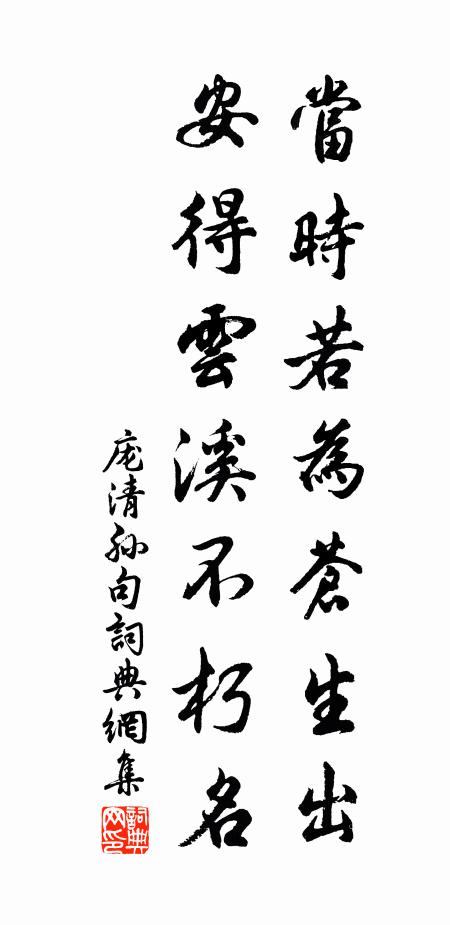 當時若為蒼生出
安得雲溪不朽名
庞清孙句詞典網集
詞典网印